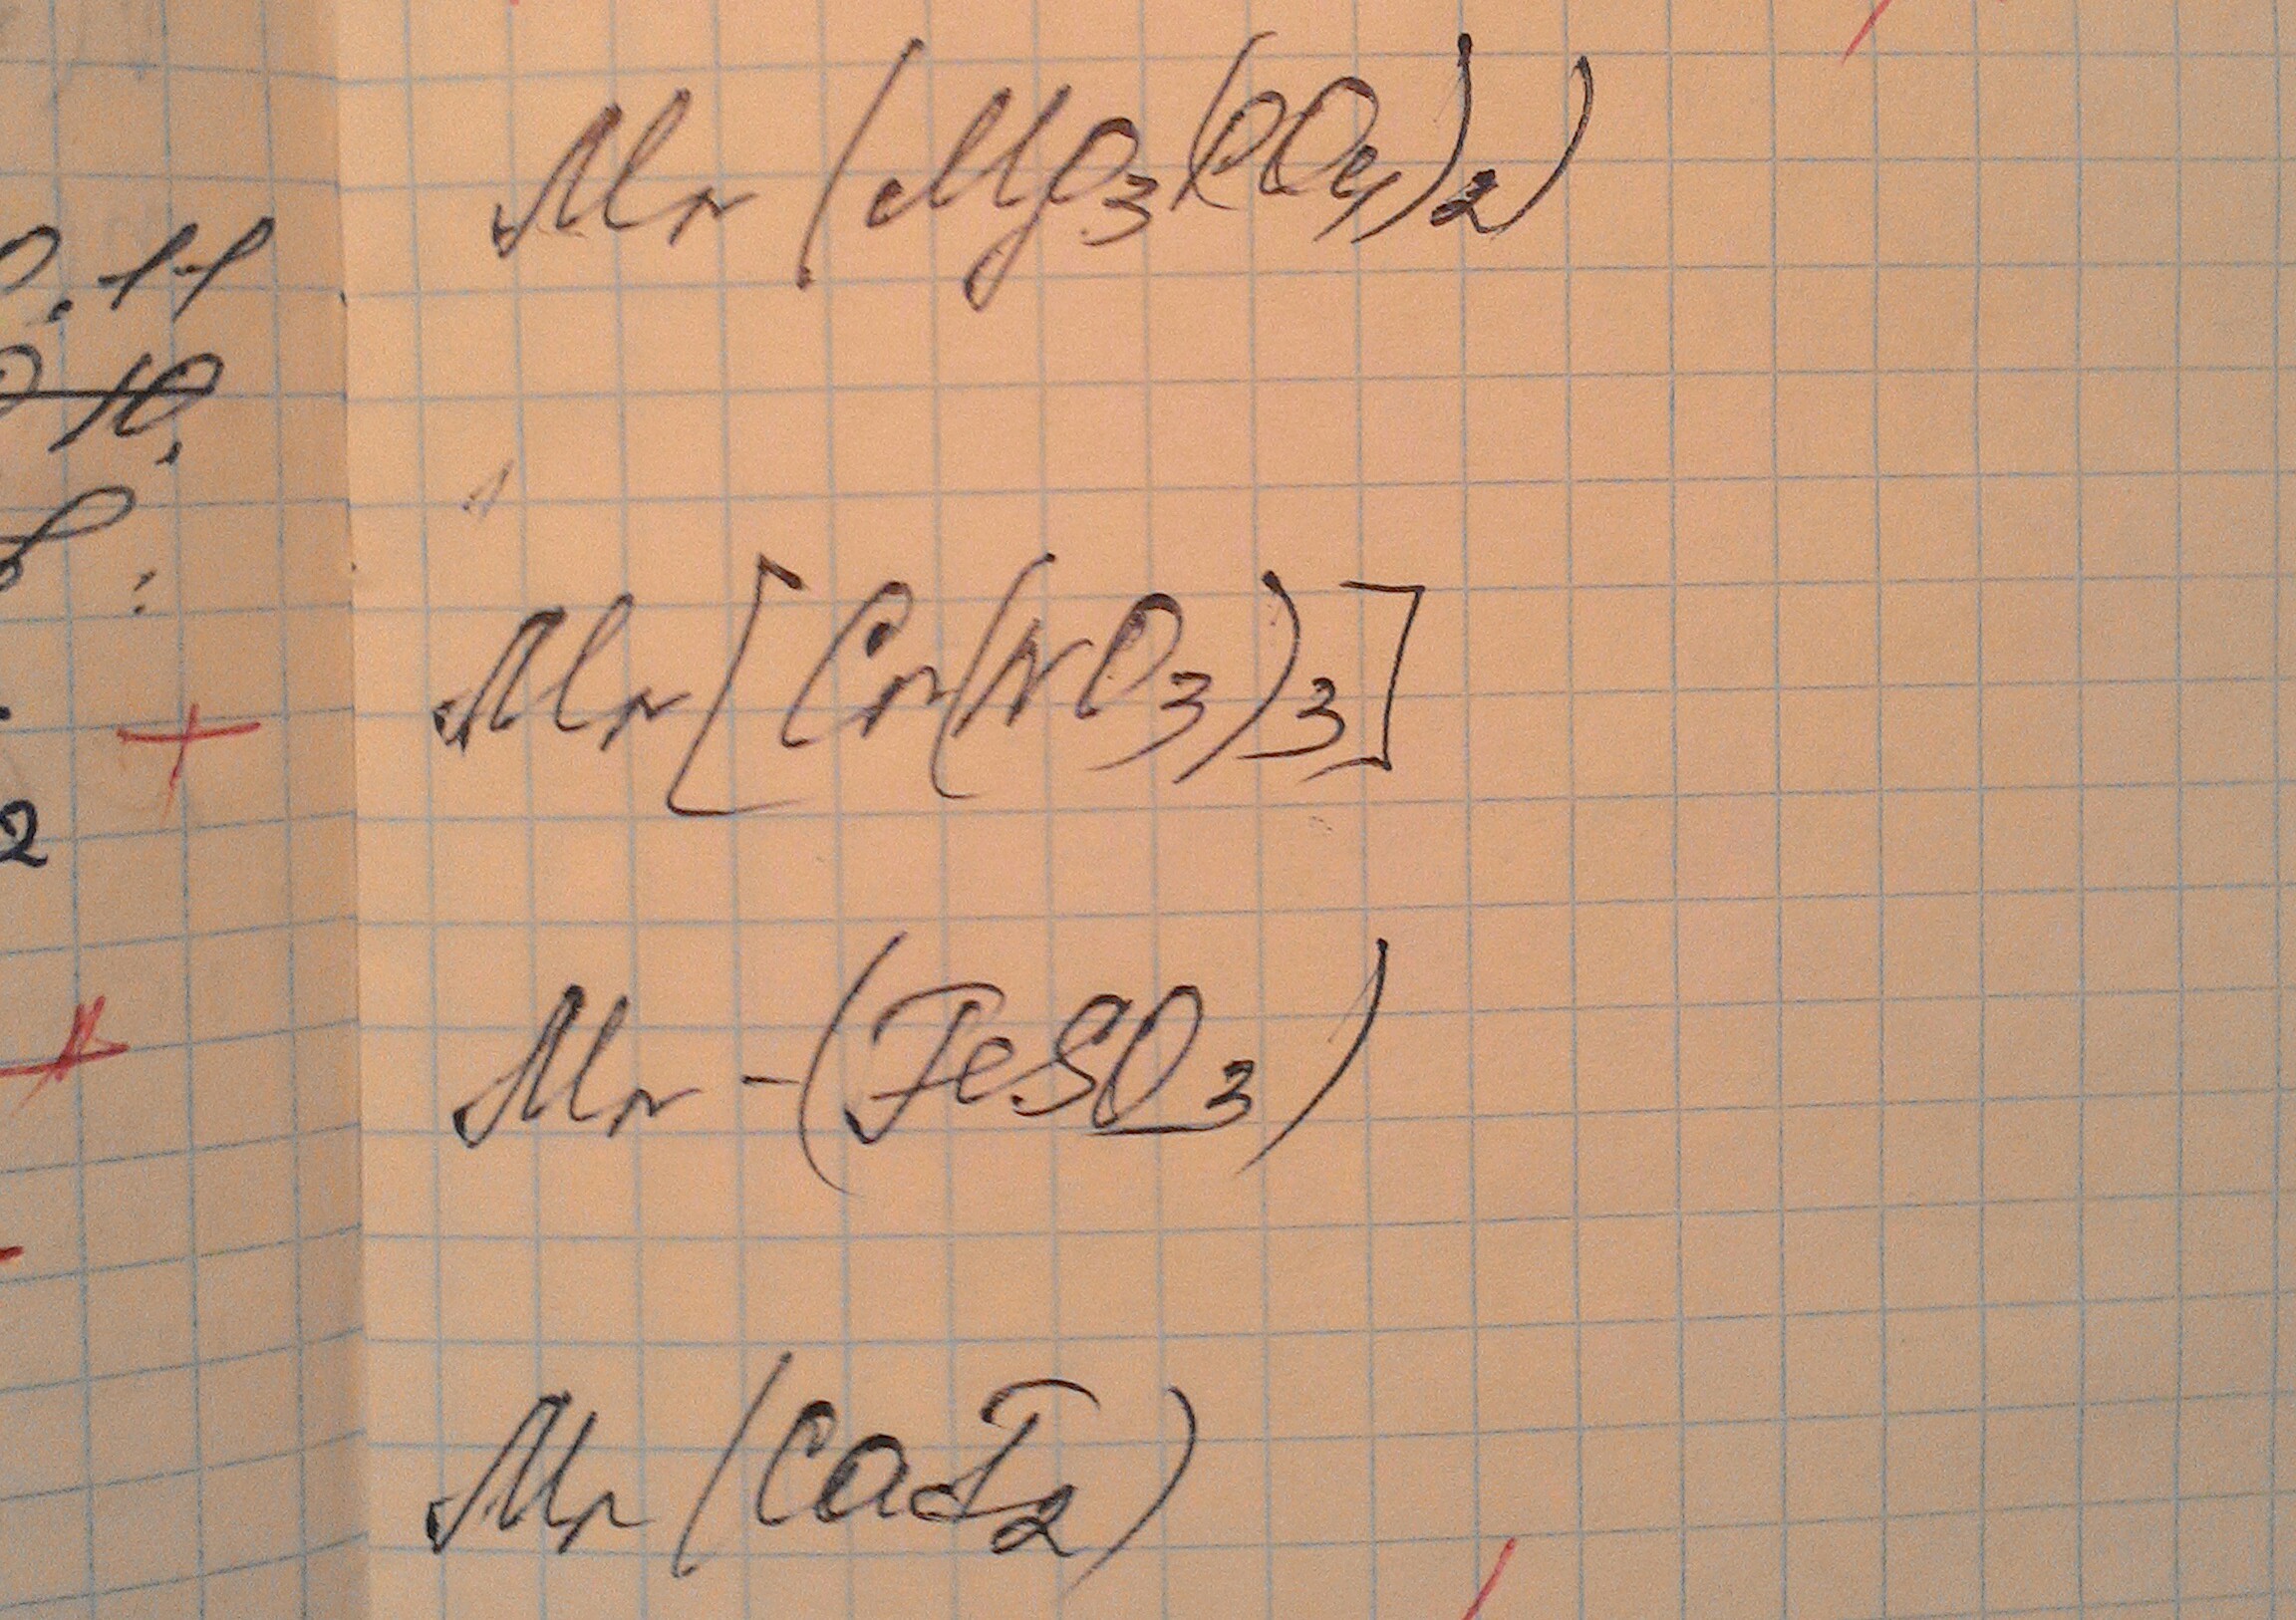 Mr (Mg₃(PO₄)₂)
Mr [Cr(NO₃)₃]
Mr -(FeSO₃)
Mr (CaI₂)